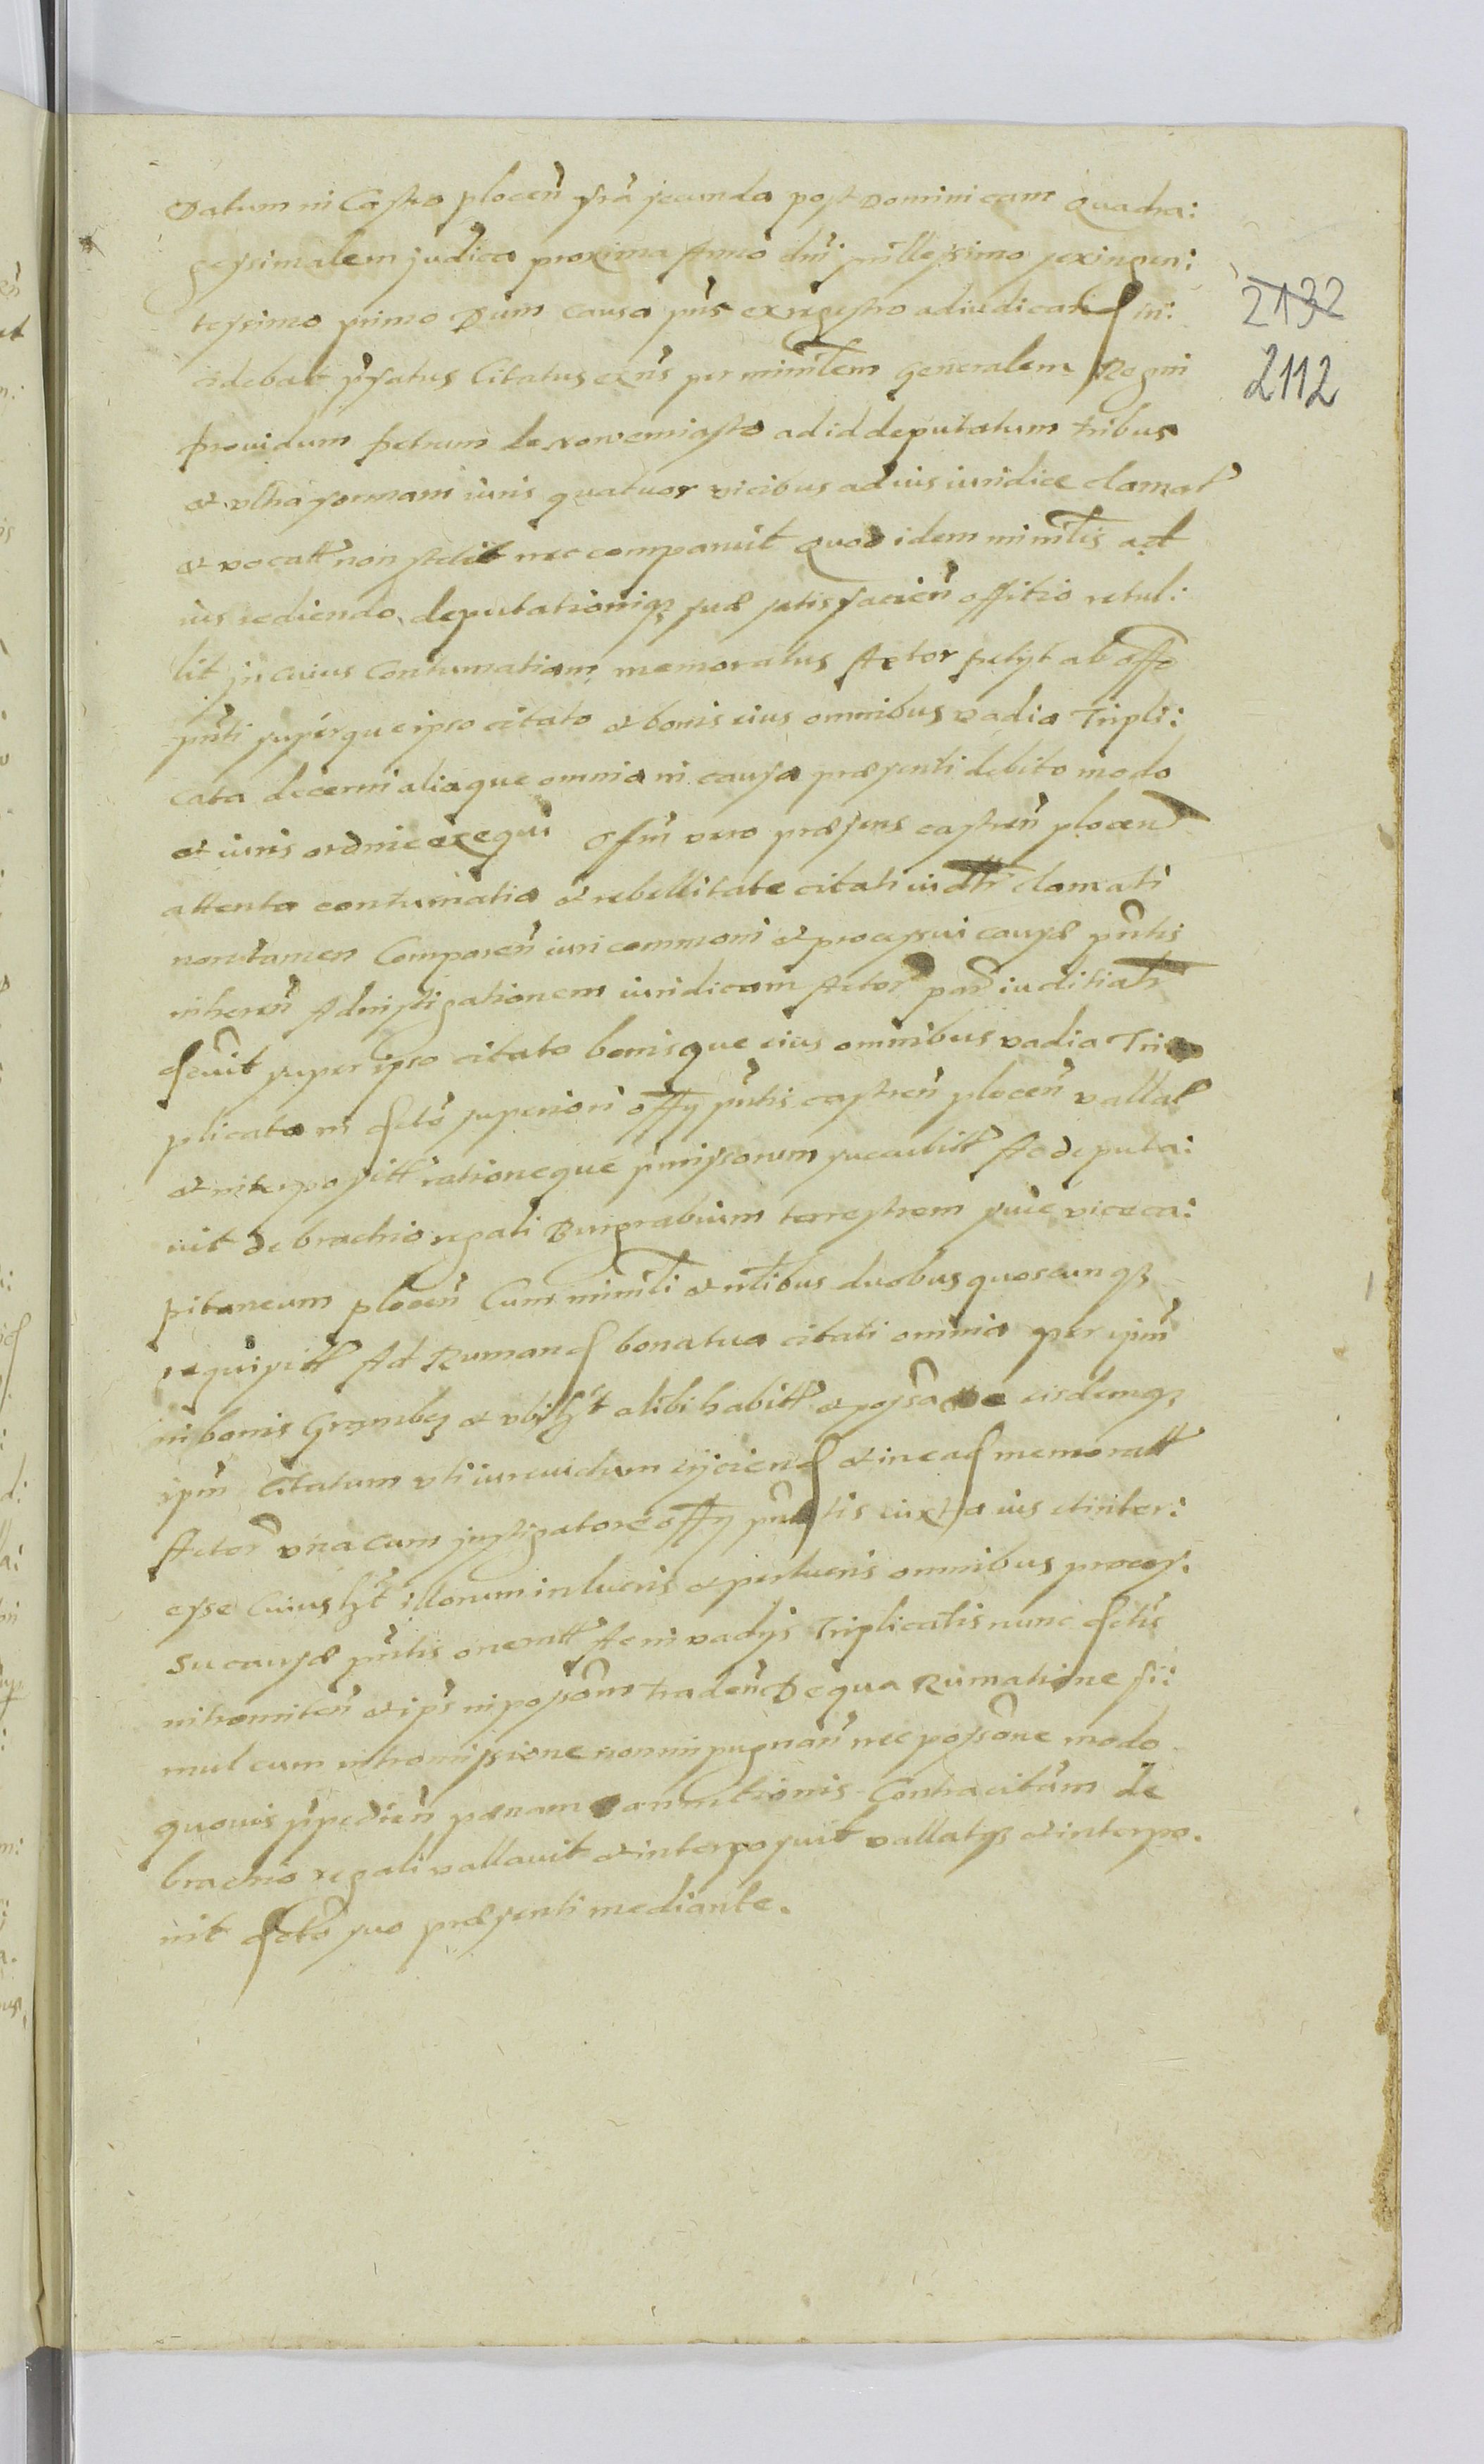 Datum in Castro plocen̄ fr̄ia secunda post Dominicam Quadra:
gessimalem judica proxima Anno dn̄i millessimo sexingen:
tessimo primo Dum causa pn̄s ex regestro adiudicat in:
cidebat p̄fatus Citatus per minl̄em generalem Regni
prouidum Petrum de Nowemiasto ad id deputatum tribus
et vltra formam iuris quatuor vicibus ad ius iuridice clamat
et vocatt non stetit nec comparuit Quod idem minl̄is ad
ius rediendo deputationiq₃ suæ satisfacien̄ offitio retul:
lit in cuius Contumatiam memoratus Actor petyt ab offo
pn̄ti superque ipso citato et bonis eius omnibus vadia Tripli:
cata decerni aliaque omnia in causa præsenti debito modo
et iuris ordine exequi Offm̄ vero præsens castren̄ plocen
attenta contumatia et rebellitate citati clamati
non tamen Comparen̄ iuri communi et processui causæ pn̄tis
inheren̄ Ad instigationem iuridicam Actor par iuditialr
super ipso citato bonisque eius omnibus vadia Tri
plicata in superiori offy pn̄tis castren̄ plocen̄ vallat
et interpositt rationeque p̄missorum succubitt Ac deputa:
uit de brachio regali Burgrabium terrestrem siue viceca:
pitaneum plocen̄ Cum minl̄i et nl̄ibus duobus quoscunq₃
requisitt Ad Ruman bona tua citati omnia per ipm̄
in bonis et vbi alibi habitt et eisdemq₃
ipm̄ Citatum vti iureuictum eijcien et in ea memoratt
Actor vna cum instigatore offy pn̄tis iuxta ius et inter:
esse cuius illorum in lucris et perlucris omnibus proces:
su causæ pn̄tis oneratt Ac in vadijs Triplicatis nunc
intromiten̄ et ips̄ in possom̄ traden̄ De qua Rumatione si:
mul cum intromissione non inpugnan̄ nec possone modo
quouis p̄pedien̄ pænam Contra citatum de
brachio regali vallauit et interposuit vallatq₃ et interpo:
nit suo præsenti mediante.
2132
2112